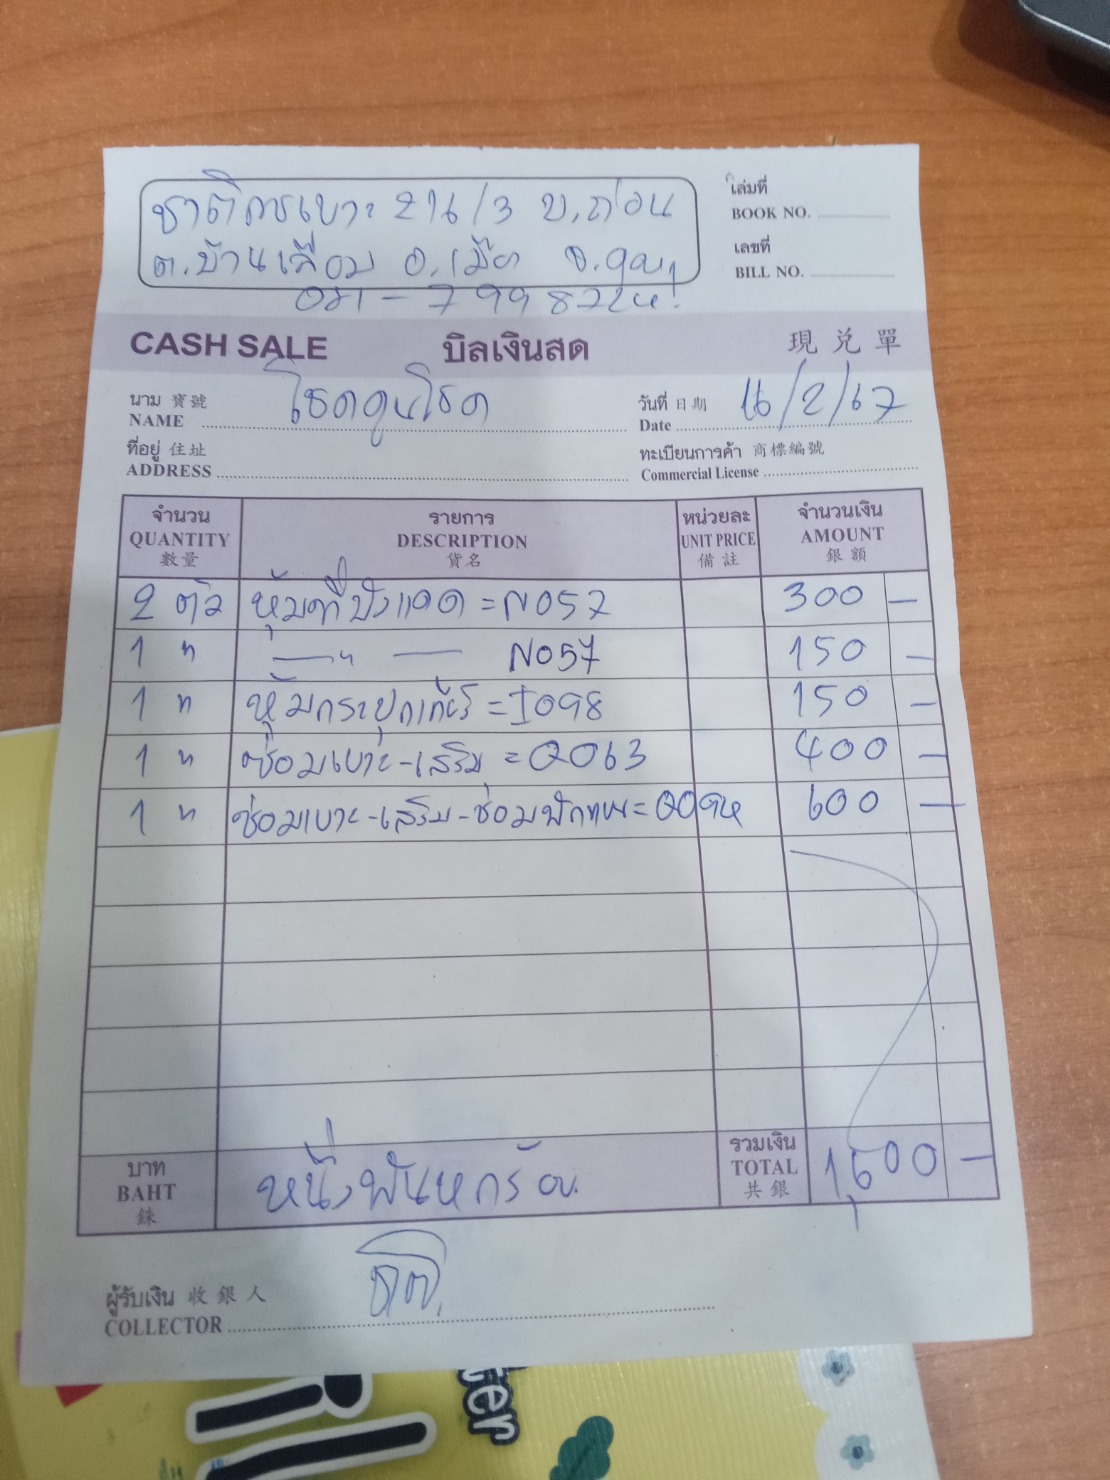 ชาติการเบาะ 214/3 บ.ถ่อน
เล่มที่
BOOK NO.
ต.บ้านเลื่อม อ.เมือง จ.อุดร
เลขที่
BILL NO.
081-7998724
CASH SALE บิลเงินสด 現兌單
นาม 寶號
NAME โชคคูนโชค
วันที่ 日期
Date 16/2/67
ที่อยู่ 住址
ADDRESS
ทะเบียนการค้า 商標編號
Commercial License
จำนวน รายการ หน่วยละ จำนวนเงิน
QUANTITY DESCRIPTION UNIT PRICE AMOUNT
數量 貨名 備註 銀額
2 ตัว หุ้มที่บังแดด = N057 300 -
1 " —"— N057 150 -
1 " หุ้มกระปุกเกียร์ = I098 150 -
1 " ซ่อมเบาะ-เสริม = Q063 400 -
1 " ซ่อมเบาะ-เสริม-ซ่อมพักแขน= 600 -
บาท
BAHT
銖
หนึ่งพันหกร้อย.
รวมเงิน
TOTAL
共銀
1,600 -
ผู้รับเงิน 收銀人
COLLECTOR
ter